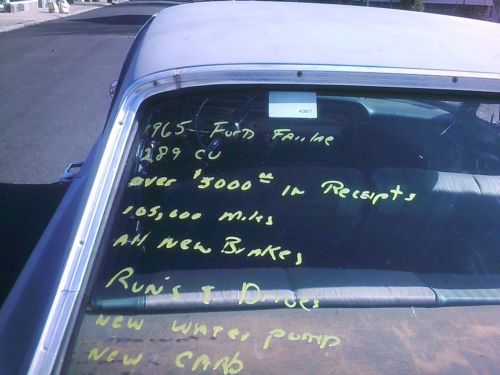 4367
1965 Ford Fairlane
289 CU
over $3000⁰⁰ in Receipts
105,600 miles
All new Brakes
Run's & Drives
New water pump
New carb